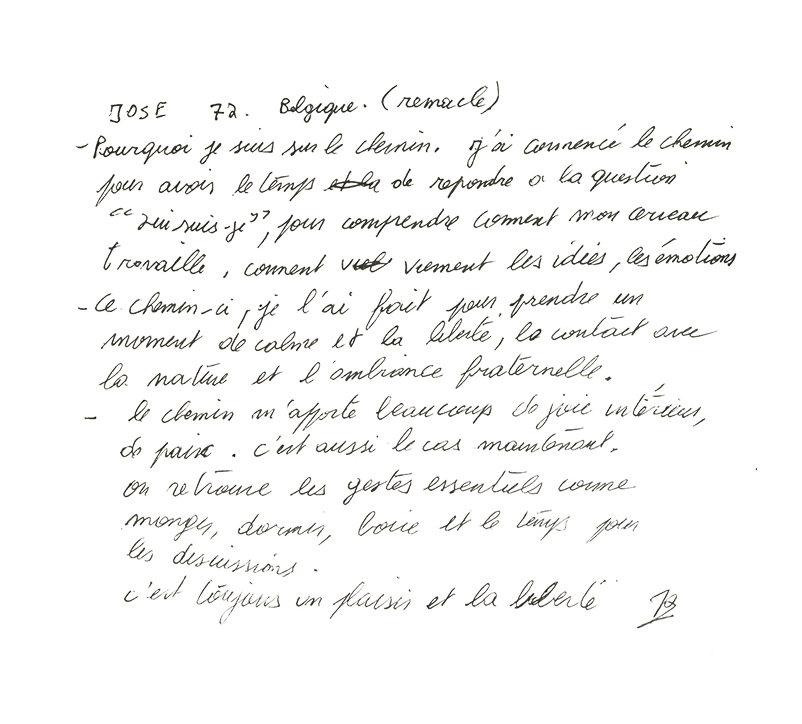 JOSE 72. Belgique. (remacle)
- Pourquoi je suis sur le chemin. J'ai commencé le chemin
pour avoir le temps et la de repondre a la question
"Qui suis-je", pour comprendre comment mon cerveau
travaille, comment viennent les idées, les émotions
- Ce chemin-ci, je l'ai fait pour prendre un
moment de calme et la liberté, la contact avec
la nature et l'ambiance fraternelle.
- le chemin m'apporte beaucoup de joie intérieur,
de paix. c'est aussi le cas maintenant.
on retrouve les gestes essentiels comme
manger, dormir, boire et le temps pour
les discussions.
c'est toujours un plaisir et la liberté